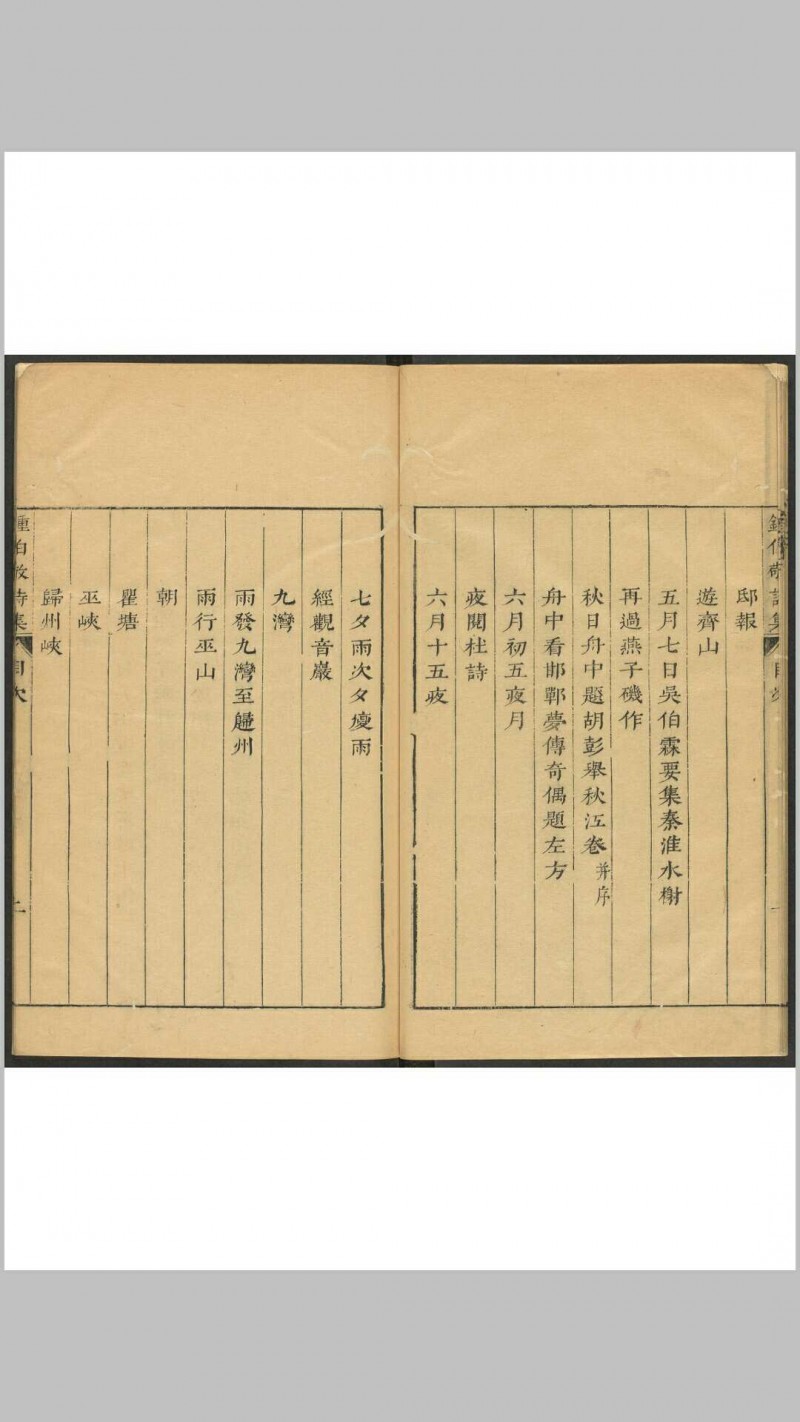 鍾伯敬詩集 目次 一
邸報
遊齊山
五月七日吳伯霖要集秦淮水榭
再過燕子磯作
秋日舟中題胡彭舉秋江卷并序
舟中看邯鄲夢傳奇偶題左方
六月初五夜月
夜閱杜詩
六月十五夜
七夕雨次夕復雨
經觀音巖
九灣
雨發九灣至歸州
雨行巫山
朝
瞿塘
巫峽
歸州峽
鍾伯敬詩集 目次 二